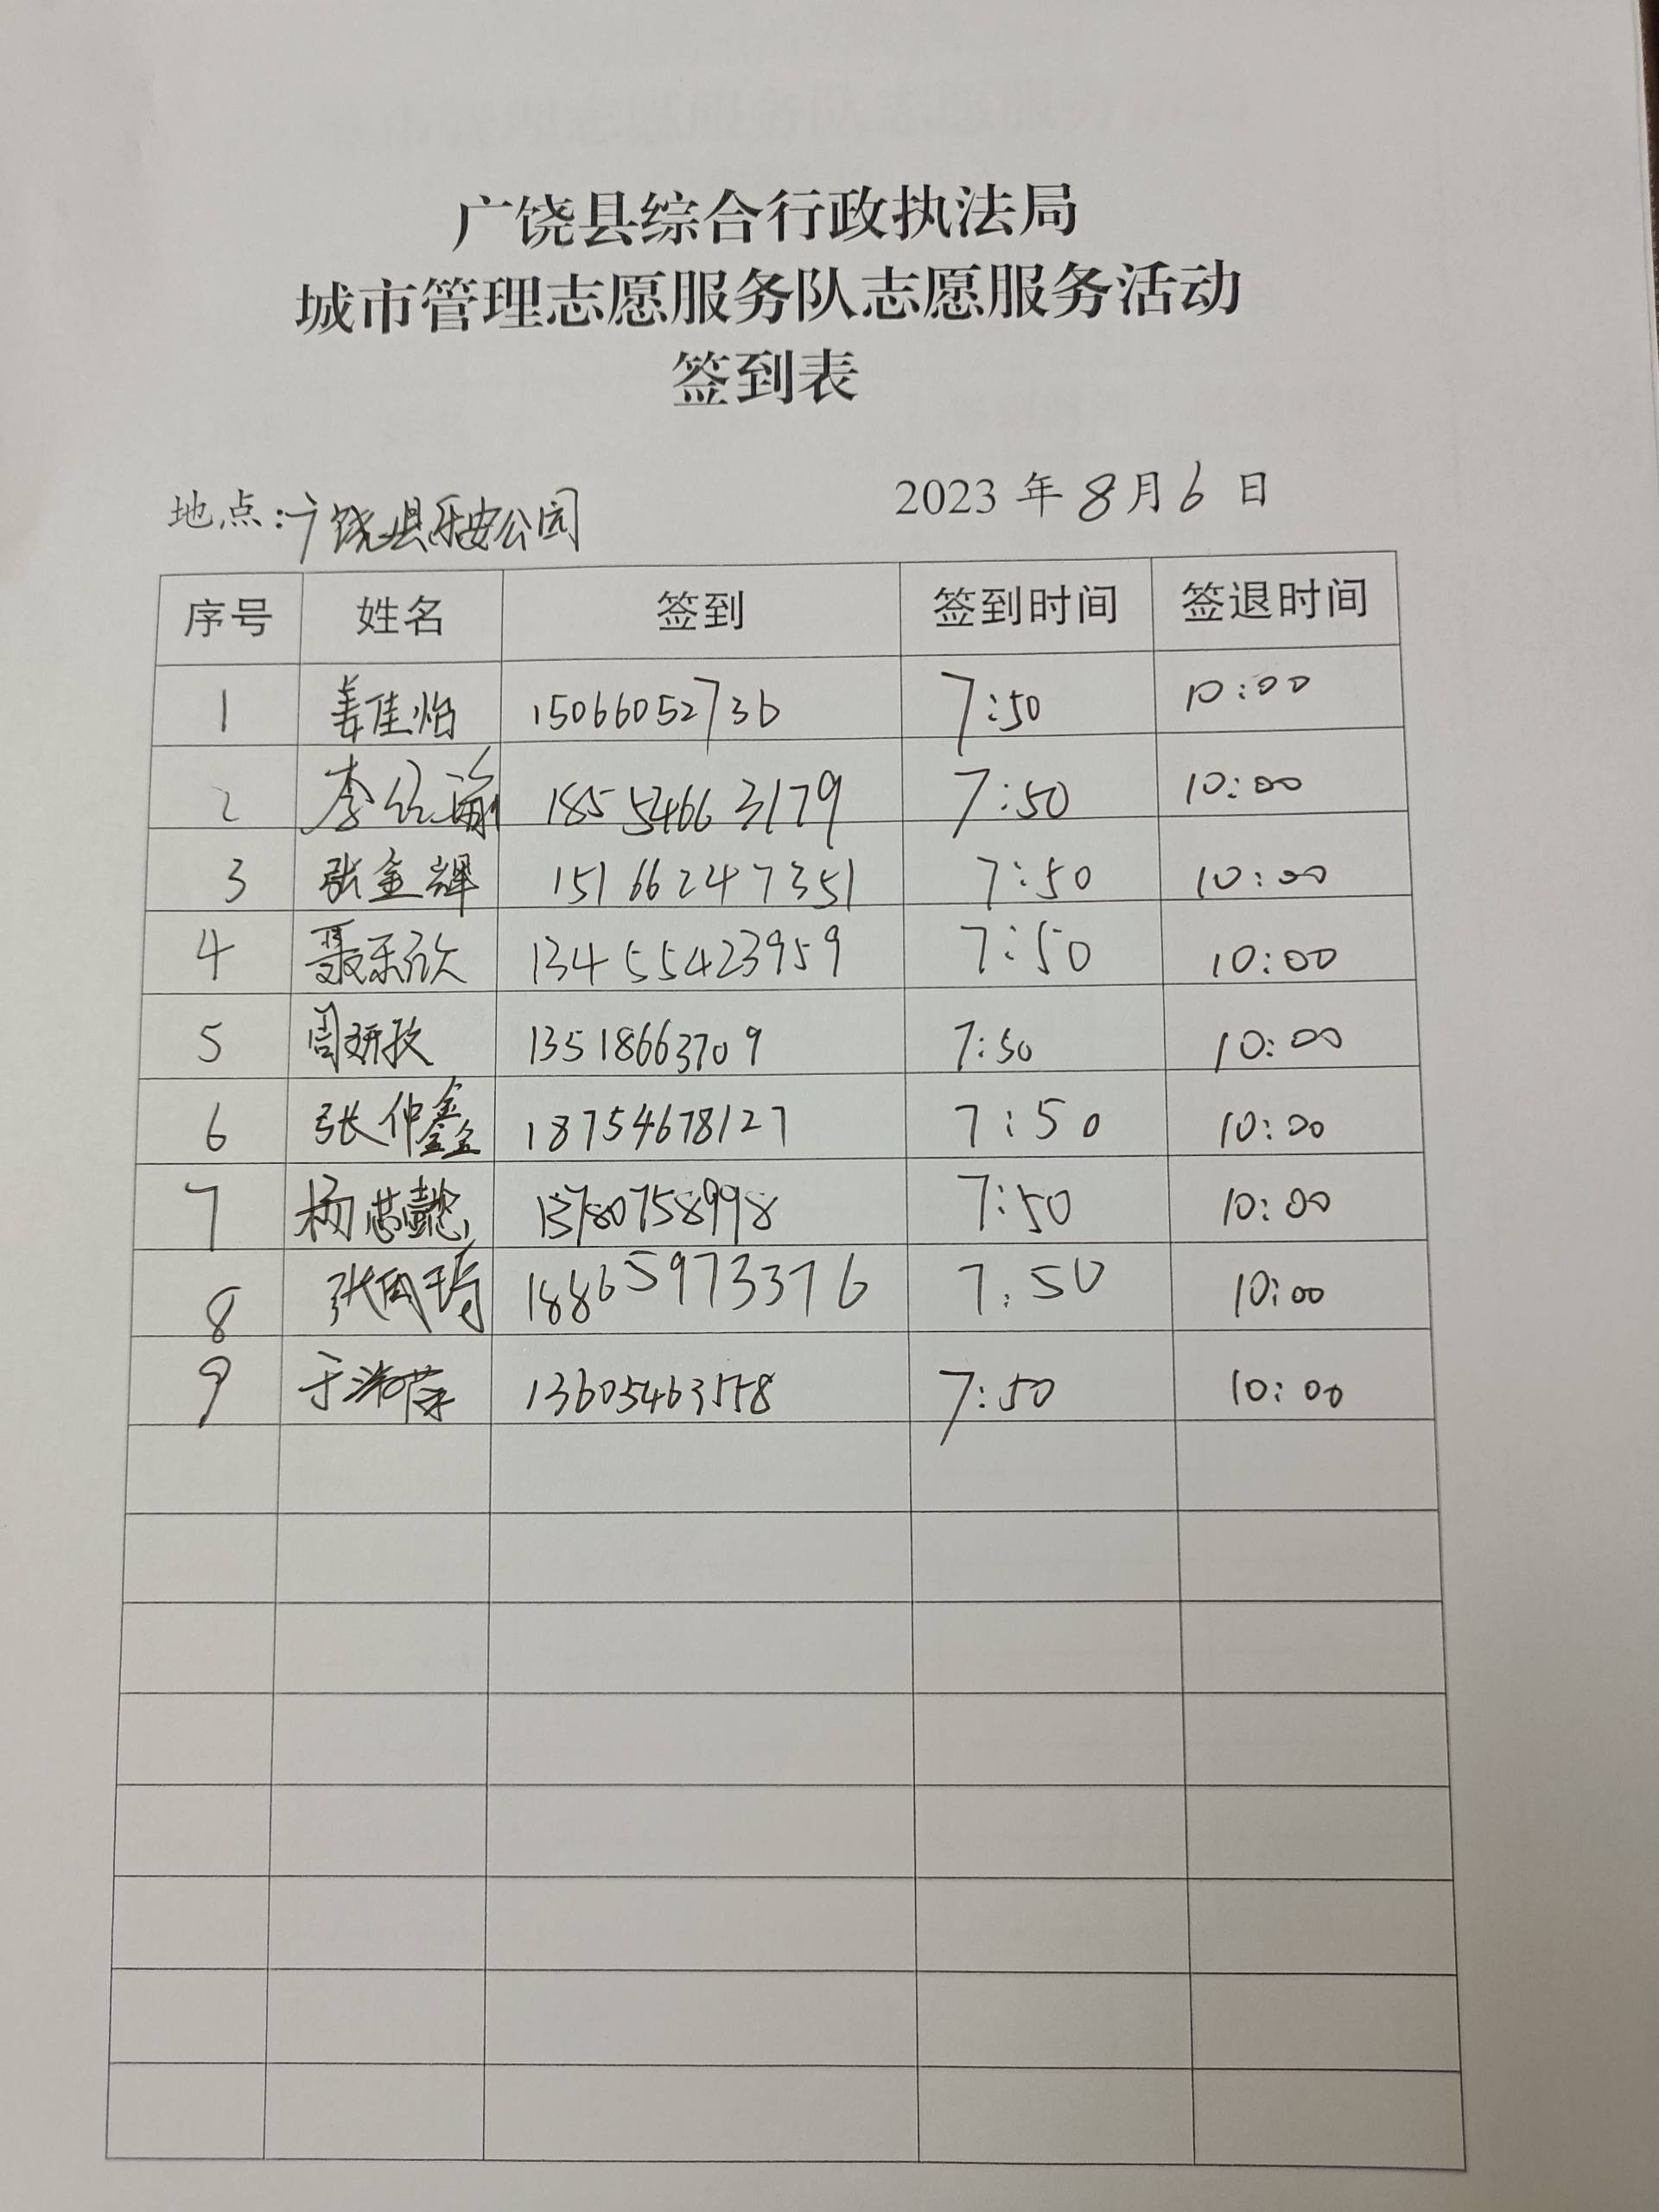 广饶县综合行政执法局
城市管理志愿服务队志愿服务活动
签到表
地点:广饶县乐安公园 2023年8月6日
序号 姓名 签到 签到时间 签退时间
1 姜佳怡 15066052736 7:50 10:00
2 李红瑜 18554663179 7:50 10:00
3 张金辉 15166247351 7:50 10:00
4 聂乐欣 13455423959 7:50 10:00
5 周妍孜 13518663709 7:50 10:00
6 张仲鑫 18754678127 7:50 10:00
7 杨芯懿 13780758998 7:50 10:00
8 18865973376 7:50 10:00
9 13605463558 7:50 10:00